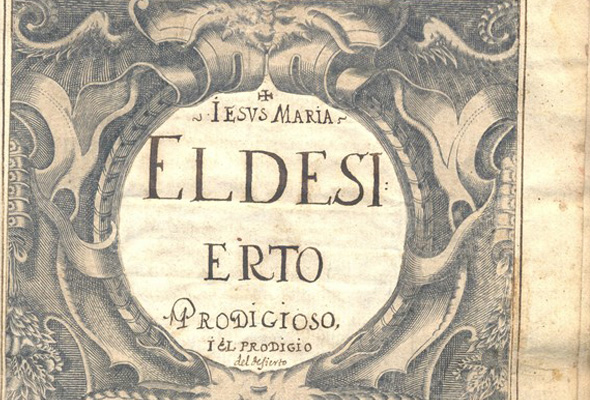 ✠
~ IESVS MARIA ~
EL DESI:
ERTO
PRODIGIOSO,
I éL PRODIGIO
del desierto